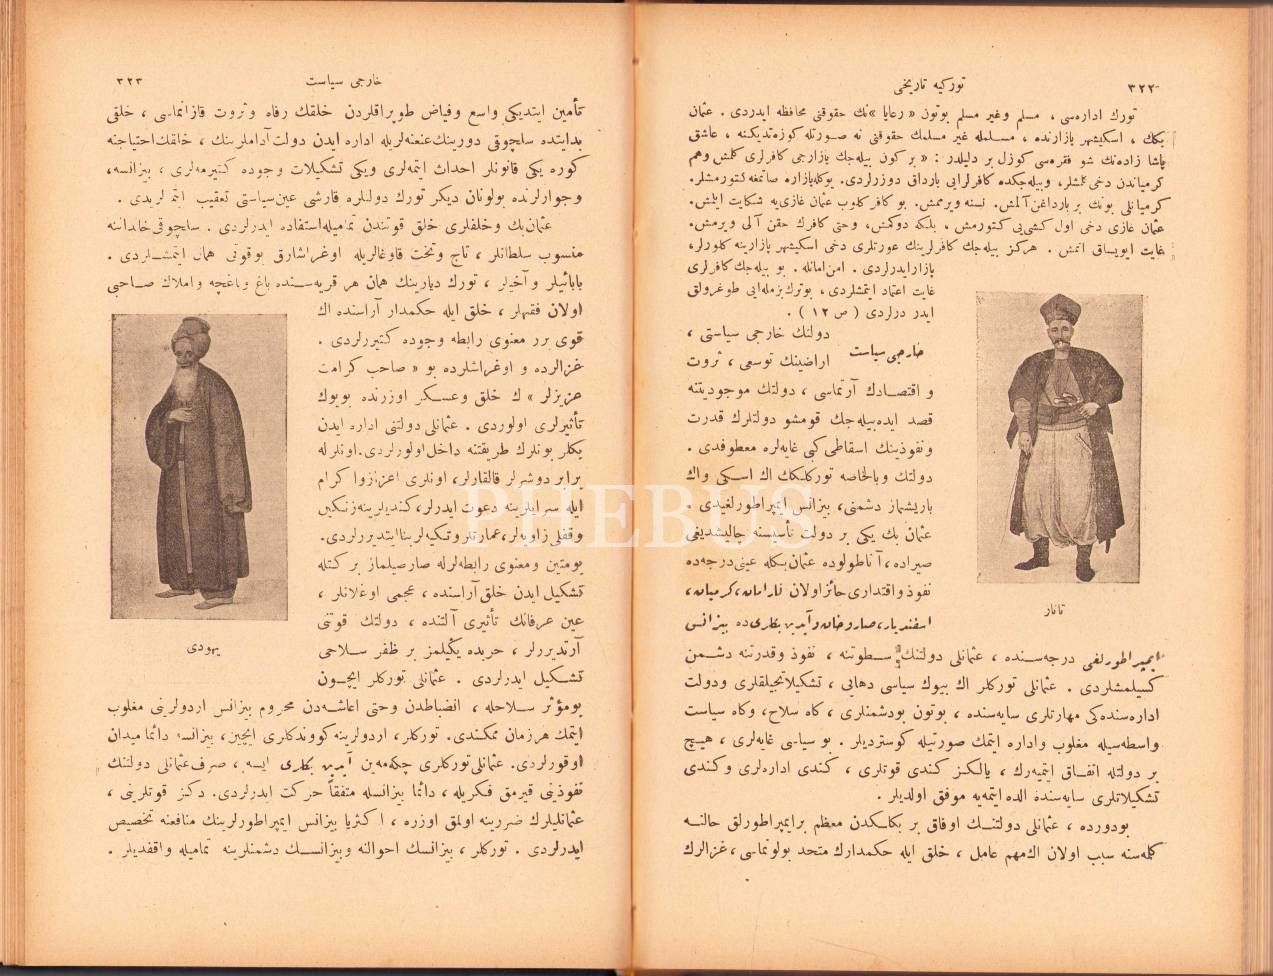 ٣٢٢
توركيه تاريخى
تورك اداره‌سى ، مسلم وغير مسلم بوتون « رعايا »نك حقوقنى محافظه ايدردى . عثمان
بكك ، اسكيشهر پازارنده ، مسلمله غير مسلمك حقوقنى نه صورتله كوزه‌تديكنه ، عاشق
پاشا زاده‌نك شو فقره‌سى كوزل بر دليلدر : « بر كون بيله‌جك پازارجى كافرلرى كلمش وهم
كرمياندن دخى كلمشلر، وبيله‌جكده كافرلرابى بارداق دوزرلردى. يوكله پازاره صاتمغه كتورمشلر.
كرميانلى بونك بر بارداغن آلمش. نسنه ويرممش. بو كافر كلوب عثمان غازى‌يه شكايت ايتمش.
عثمان غازى دخى اول كشى‌يى كتورمش ، بلكه دوكمش، وحتى كافرك حقن آلى ويرمش.
غايت ايويساق اتمش . هركز بيله‌جك كافرلرينك عورتلرى دخى اسكيشهر پازارينه كلورلر،
پازار ايدرلردى . امن امانله . بو بيله‌جك كافرلرى
غايت اعتماد ايتمشلردى ، بوترك بزمله ايى طوغرولق
ايدر درلردى ( ص ١٢ ) .
خارجى سياست
دولتك خارجى سياستى ،
اراضينك توسعى ، ثروت
و اقتصادك آرتماسى ، دولتك موجوديتنه
قصد ايده‌بيله‌جك قومشو دولتلرك قدرت
ونفوذينك اسقاطى كبى غايه‌لره معطوفدى .
دولتك وبالخاصه توركلكك اك اسكى واك
باريشماز دشمنى، بيزانس ايمپراطورلغيدى .
عثمان بك يكى بر دولت تأسيسنه چاليشديغى
صيراده، آناطولوده عثمان بكله عينى درجه‌ده
نفوذ واقتدارى حائز اولان قارامان، كرميان،
اسفنديار، صاروخان وآيدين بكلرى‌ده بيزانس
تاتار
ايمپراطورلغى درجه‌سنده ، عثمانلى دولتنك سطوتنه ، نفوذ وقدرتنه دشمن
كسيلمشلردى . عثمانلى توركلر اك بيوك سياسى دهايى ، تشكيلاتجيلقلرى ودولت
اداره‌سنده‌كى مهارتلرى سايه‌سنده ، بوتون بودشمنلرى ، كاه سلاح، وكاه سياست
واسطه‌سيله مغلوب واداره ايتمك صورتيله كوسترديلر . بو سياسى غايه‌لرى ، هيچ
بر دولتله اتفاق ايتميه‌رك ، يالكز كندى قوتلرى ، كندى اداره‌لرى وكندى
تشكيلاتلرى سايه‌سنده الده ايتمه‌يه موفق اولديلر .
بودورده ، عثمانلى دولتنك اوفاق بر بكلكدن معظم برايمپراطورلق حالنه
كلمه‌سنه سبب اولان اك مهم عامل ، خلق ايله حكمدارك متحد بولونماسى ، غزالرك
٣٢٣
خارجى سياست
تأمين ايتديكى واسع وفياض طوپراقلردن خلقك رفاه وثروت قازانماسى ، خلقى
بدايتده سلچوقى دورينك عنعنه‌لريله اداره ايدن دولت آداملرينك ، خلقك احتياجنه
كوره يكى قانونلر احداث ايتمه‌لرى ويكى تشكيلات وجوده كتيرمه‌لرى ، بيزانسه،
وجوارلرنده بولونان ديكر تورك دولتلره قارشى عين سياستى تعقيب ايتمه‌لريدى .
عثمان بك وخلفلرى خلق قوتندن تماميله استفاده ايدرلردى . سلچوقى خاندانه
منسوب سلطانلر ، تاج وتخت قاوغالريله اوغراشارق بوقوتى همال ايتمشلردى .
بابائيلر و آخيلر ، تورك ديارينك همان هر قريه‌سنده باغ وباغچه واملاك صاحبى
اولان فقيهلر ، خلق ايله حكمدار آراسنده اك
قوى برر معنوى رابطه وجوده كتيررلردى .
غزالرده و اوغراشلرده بو « صاحب كرامت
عزيزلر » ك خلق وعسكر اوزرنده بويوك
تأثيرلرى اولوردى . عثمانلى دولتنى اداره ايدن
بكلر بونلرك طريقتنه داخل اولورلردى. اونلرله
برابر دوشرلر قالقارلر، اونلرى اعزازوا كرام
ايله سرايلرينه دعوت ايدرلر، كنديلرينه زنكين
وقفلى زاويه‌لر، عمارتلر وتكيه‌لر بنا ايتديررلردى.
بومتين ومعنوى رابطه‌لرله صارصيلماز بر كتله
تشكيل ايدن خلق آراسنده ، عجمى اوغلانلر ،
عين عرفانك تأثيرى آلتنده ، دولتك قوتنى
آرتديررلر ، حربده يكيلمز بر ظفر سلاحى
تشكيل ايدرلردى . عثمانلى توركلر ايچون
يهودى
بومؤثر سلاحله ، انضباطدن وحتى اعاشه‌دن محروم بيزانس اردولرينى مغلوب
ايتمك هرزمان ممكندى. توركلر، اردولرينه كووندكلرى ايچين، بيزانسه دائما ميدان
اوقورلردى. عثمانلى توركلرى چكه‌مه‌ين آيدين بكلرى ايسه ، صرف عثمانلى دولتنك
نفوذينى قيرمق فكريله ، دائما بيزانسله متفقاً حركت ايدرلردى. دكز قوتلرينى ،
عثمانليلرك ضررينه اولمق اوزره ، اكثريا بيزانس ايمپراطورلرينك منافعنه تخصيص
ايدرلردى . توركلر ، بيزانسك احوالنه وبيزانسك دشمنلرينه تماميله واقفديلر .
PHEBUS